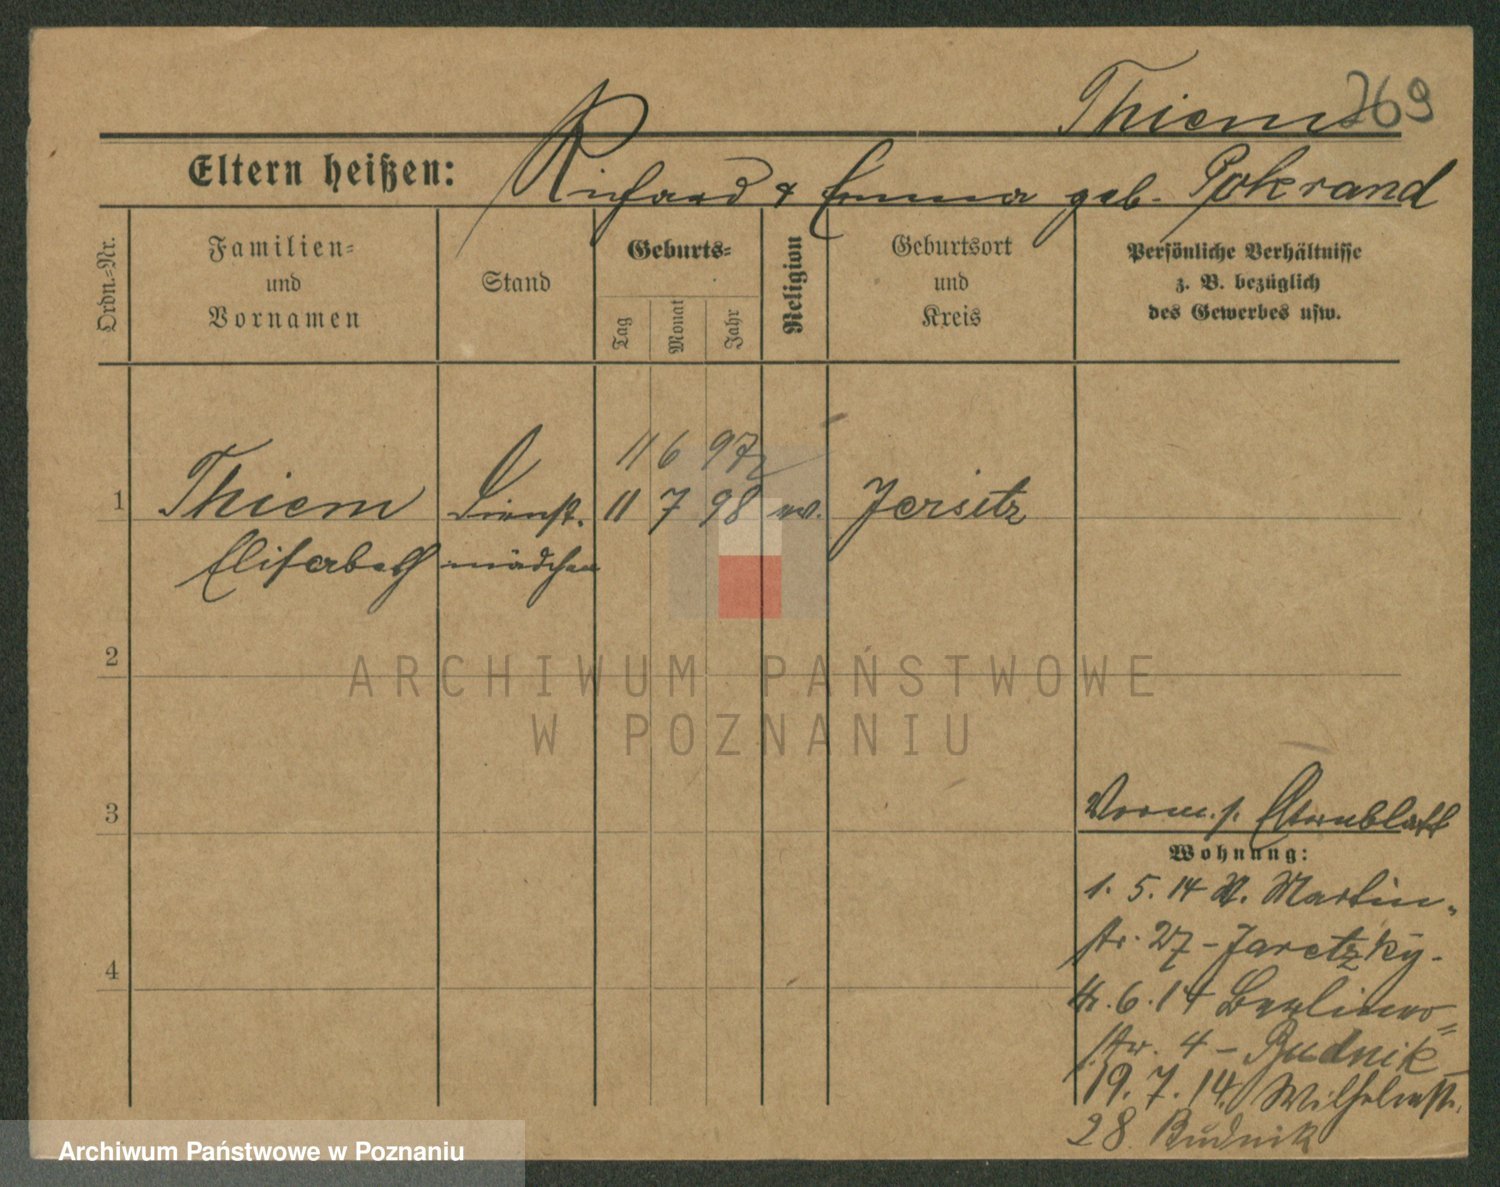 Thiem 269
Eltern heißen: Richard & Emma geb. Pokrand
Ordn.=Nr.
Familien=
und
Vornamen
Stand
Geburts=
Tag
Monat
Jahr
Religion
Geburtsort
und
Kreis
Persönliche Verhältnisse
z. B. bezüglich
des Gewerbes usw.
11 6 97
1 Thiem Dienst= 11 7 98 ev. Jersitz
Elisabeth mädchen
2
3
4
Vorm. s. Elternblatt
Wohnung:
1. 5. 14 St. Martin-
str. 27 - Jaretzky.
6. 14 Berliner=
str. 4 - Budnik
19. 7. 14. Wilhelmstr.
28. Budnik
ARCHIWUM PAŃSTWOWE
W POZNANIU
Archiwum Państwowe w Poznaniu